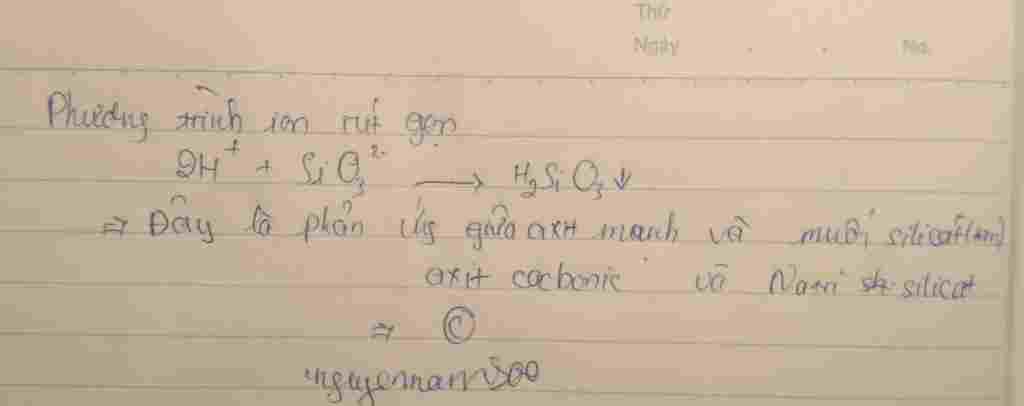 Thứ
Ngày . . No.
Phương trình ion rút gọn
2H⁺ + SiO₃²⁻ → H₂SiO₃↓
⇒ Đây là phản ứng giữa axit mạnh và muối silicat (tan)
axit cacbonic và Natri silicat
⇒ Ⓒ
nguyennam300